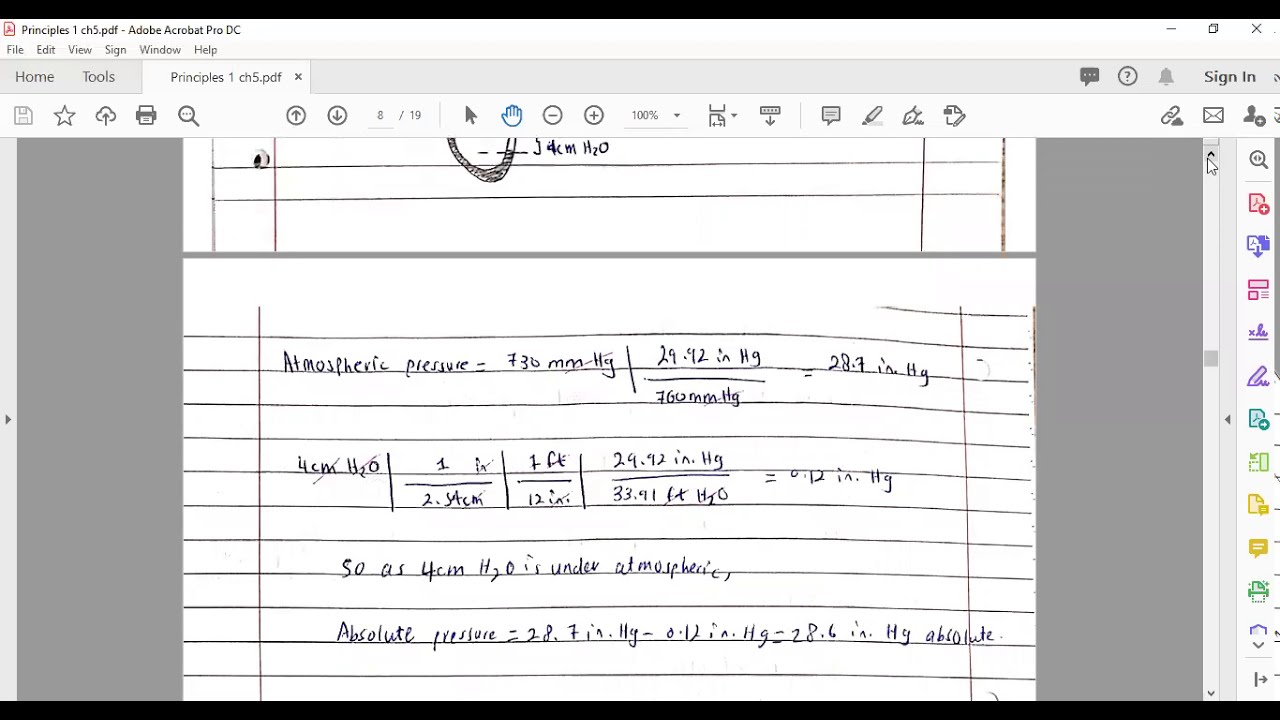 Principles 1 ch5.pdf - Adobe Acrobat Pro DC
File Edit View Sign Window Help
Home Tools Principles 1 ch5.pdf × Sign In
8 / 19 100%
4cm H2O
Atmospheric pressure = 730 mm Hg | 29.92 in Hg = 28.7 in. Hg
760 mm Hg
4cm H2O | 1 in | 1 ft | 29.92 in. Hg = 0.12 in. Hg
2.54cm | 12 in. | 33.91 ft H2O
So as 4cm H2O is under atmospheric,
Absolute pressure = 28.7 in. Hg - 0.12 in. Hg = 28.6 in. Hg absolute.